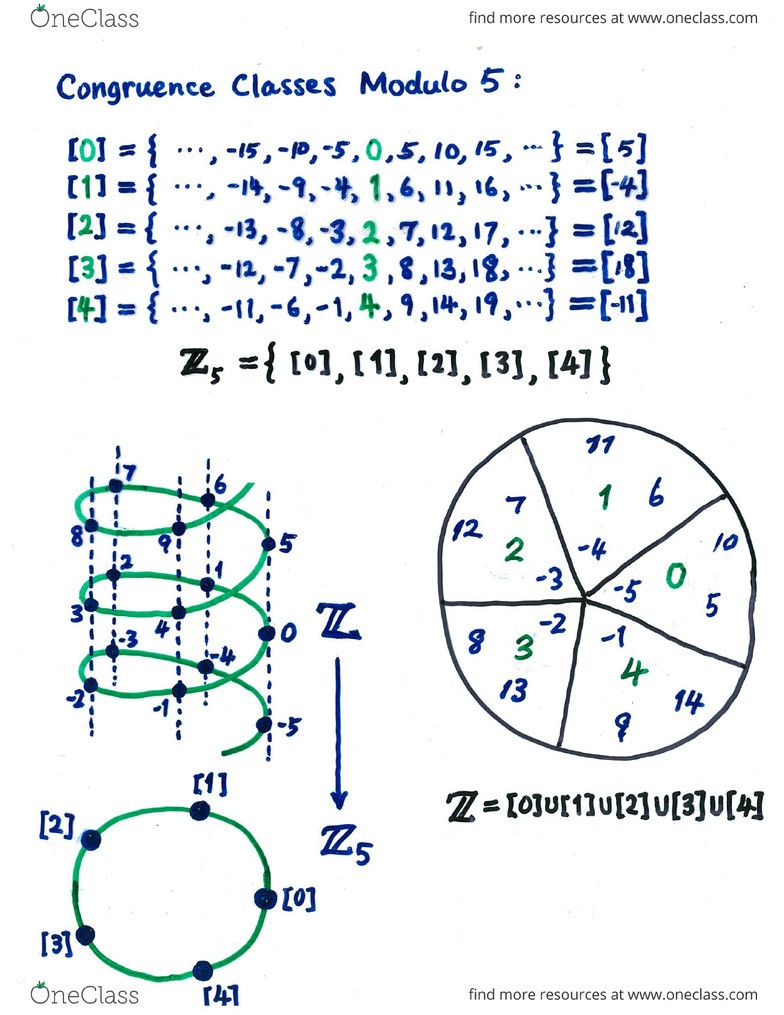 OneClass
find more resources at www.oneclass.com
Congruence Classes Modulo 5:
[0] = { ..., -15, -10, -5, 0, 5, 10, 15, ... } = [5]
[1] = { ..., -14, -9, -4, 1, 6, 11, 16, ... } = [-4]
[2] = { ..., -13, -8, -3, 2, 7, 12, 17, ... } = [12]
[3] = { ..., -12, -7, -2, 3, 8, 13, 18, ... } = [18]
[4] = { ..., -11, -6, -1, 4, 9, 14, 19, ... } = [-11]
ℤ₅ = { [0], [1], [2], [3], [4] }
7
6
8
9
5
2
1
3
4
0
-3
-4
-2
-1
-5
ℤ
ℤ₅
11
1
6
-4
7
12
2
-3
10
0
-5
5
8
3
-2
13
-1
4
14
9
ℤ = [0]∪[1]∪[2]∪[3]∪[4]
[1]
[2]
[0]
[3]
[4]
OneClass
find more resources at www.oneclass.com